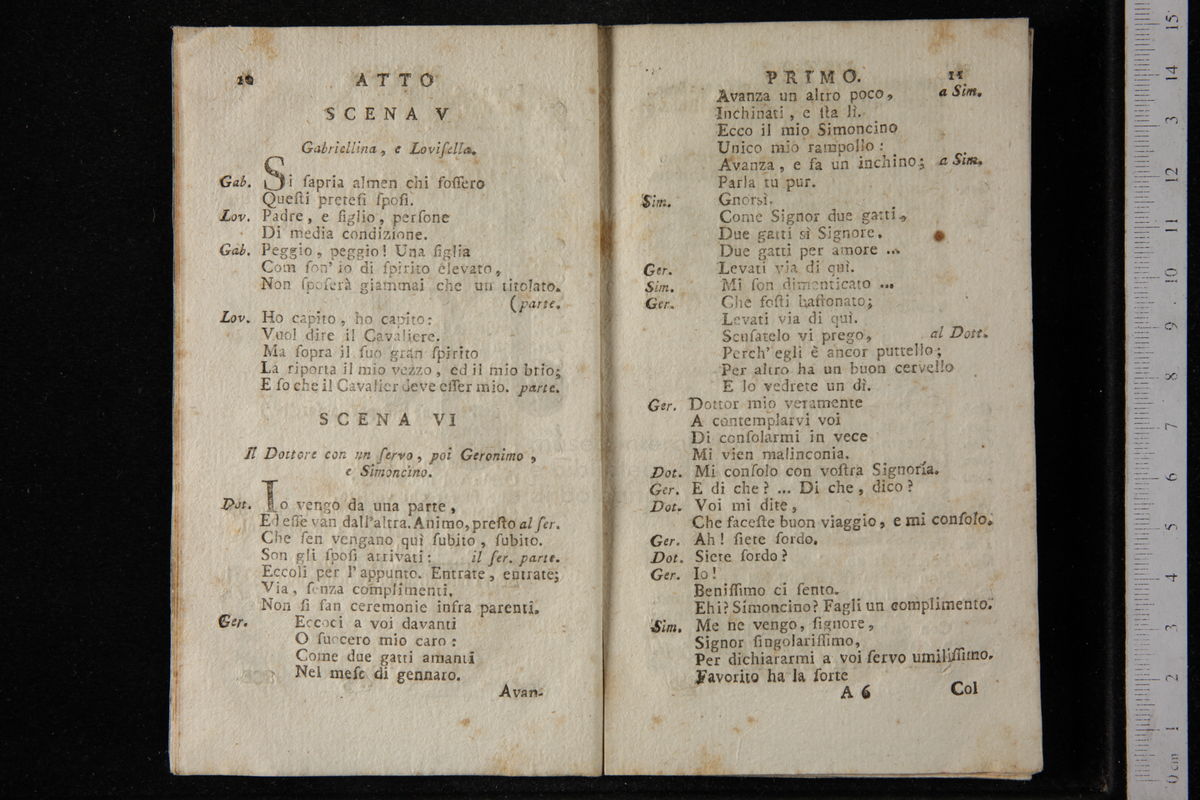 10 ATTO
SCENA V
Gabriellina, e Loviſella.
Gab. Si ſapria almen chi foſſero
Queſti preteſi ſpoſi.
Lov. Padre, e figlio, perſone
Di media condizione.
Gab. Peggio, peggio! Una figlia
Com ſon' io di ſpirito elevato,
Non ſpoſerà giammai che un titolato.
(parte.
Lov. Ho capito, ho capito:
Vuol dire il Cavaliere.
Ma ſopra il ſuo gran ſpirito
La riporta il mio vezzo, ed il mio brio;
E ſo che il Cavalier deve eſſer mio. parte.
SCENA VI
Il Dottore con un ſervo, poi Geronimo,
e Simoncino.
Dot. Io vengo da una parte,
Ed eſſe van dall'altra. Animo, preſto al ſer.
Che ſen vengano quì ſubito, ſubito.
Son gli ſpoſi arrivati: il ſer. parte.
Eccoli per l'appunto. Entrate, entrate;
Via, ſenza complimenti.
Non ſi fan ceremonie infra parenti.
Ger. Eccoci a voi davanti
O ſuocero mio caro:
Come due gatti amanti
Nel meſe di gennaro.
Avan-
PRIMO. 11
Avanza un altro poco, a Sim.
Inchinati, e ſta lì.
Ecco il mio Simoncino
Unico mio rampollo:
Avanza, e fa un inchino; a Sim.
Parla tu pur.
Sim. Gnorsì.
Come Signor due gatti,
Due gatti sì Signore.
Due gatti per amore ...
Ger. Levati via di quì.
Sim. Mi ſon dimenticato ...
Ger. Che foſti baſtonato;
Levati via di quì.
Scuſatelo vi prego, al Dott.
Perch' egli è ancor puttello;
Per altro ha un buon cervello
E lo vedrete un dì.
Ger. Dottor mio veramente
A contemplarvi voi
Di conſolarmi in vece
Mi vien malinconia.
Dot. Mi conſolo con voſtra Signoría.
Ger. E di che? ... Di che, dico?
Dot. Voi mi dite,
Che faceſte buon viaggio, e mi conſolo.
Ger. Ah! ſiete ſordo.
Dot. Siete ſordo?
Ger. Io!
Beniſſimo ci ſento.
Ehi? Simoncino? Fagli un complimento.
Sim. Me ne vengo, ſignore,
Signor ſingolariſſimo,
Per dichiararmi a voi ſervo umiliſſimo.
Favorito ha la ſorte
A 6 Col
15
14
13
12
11
10
9
8
7
6
5
4
3
2
1
0 cm